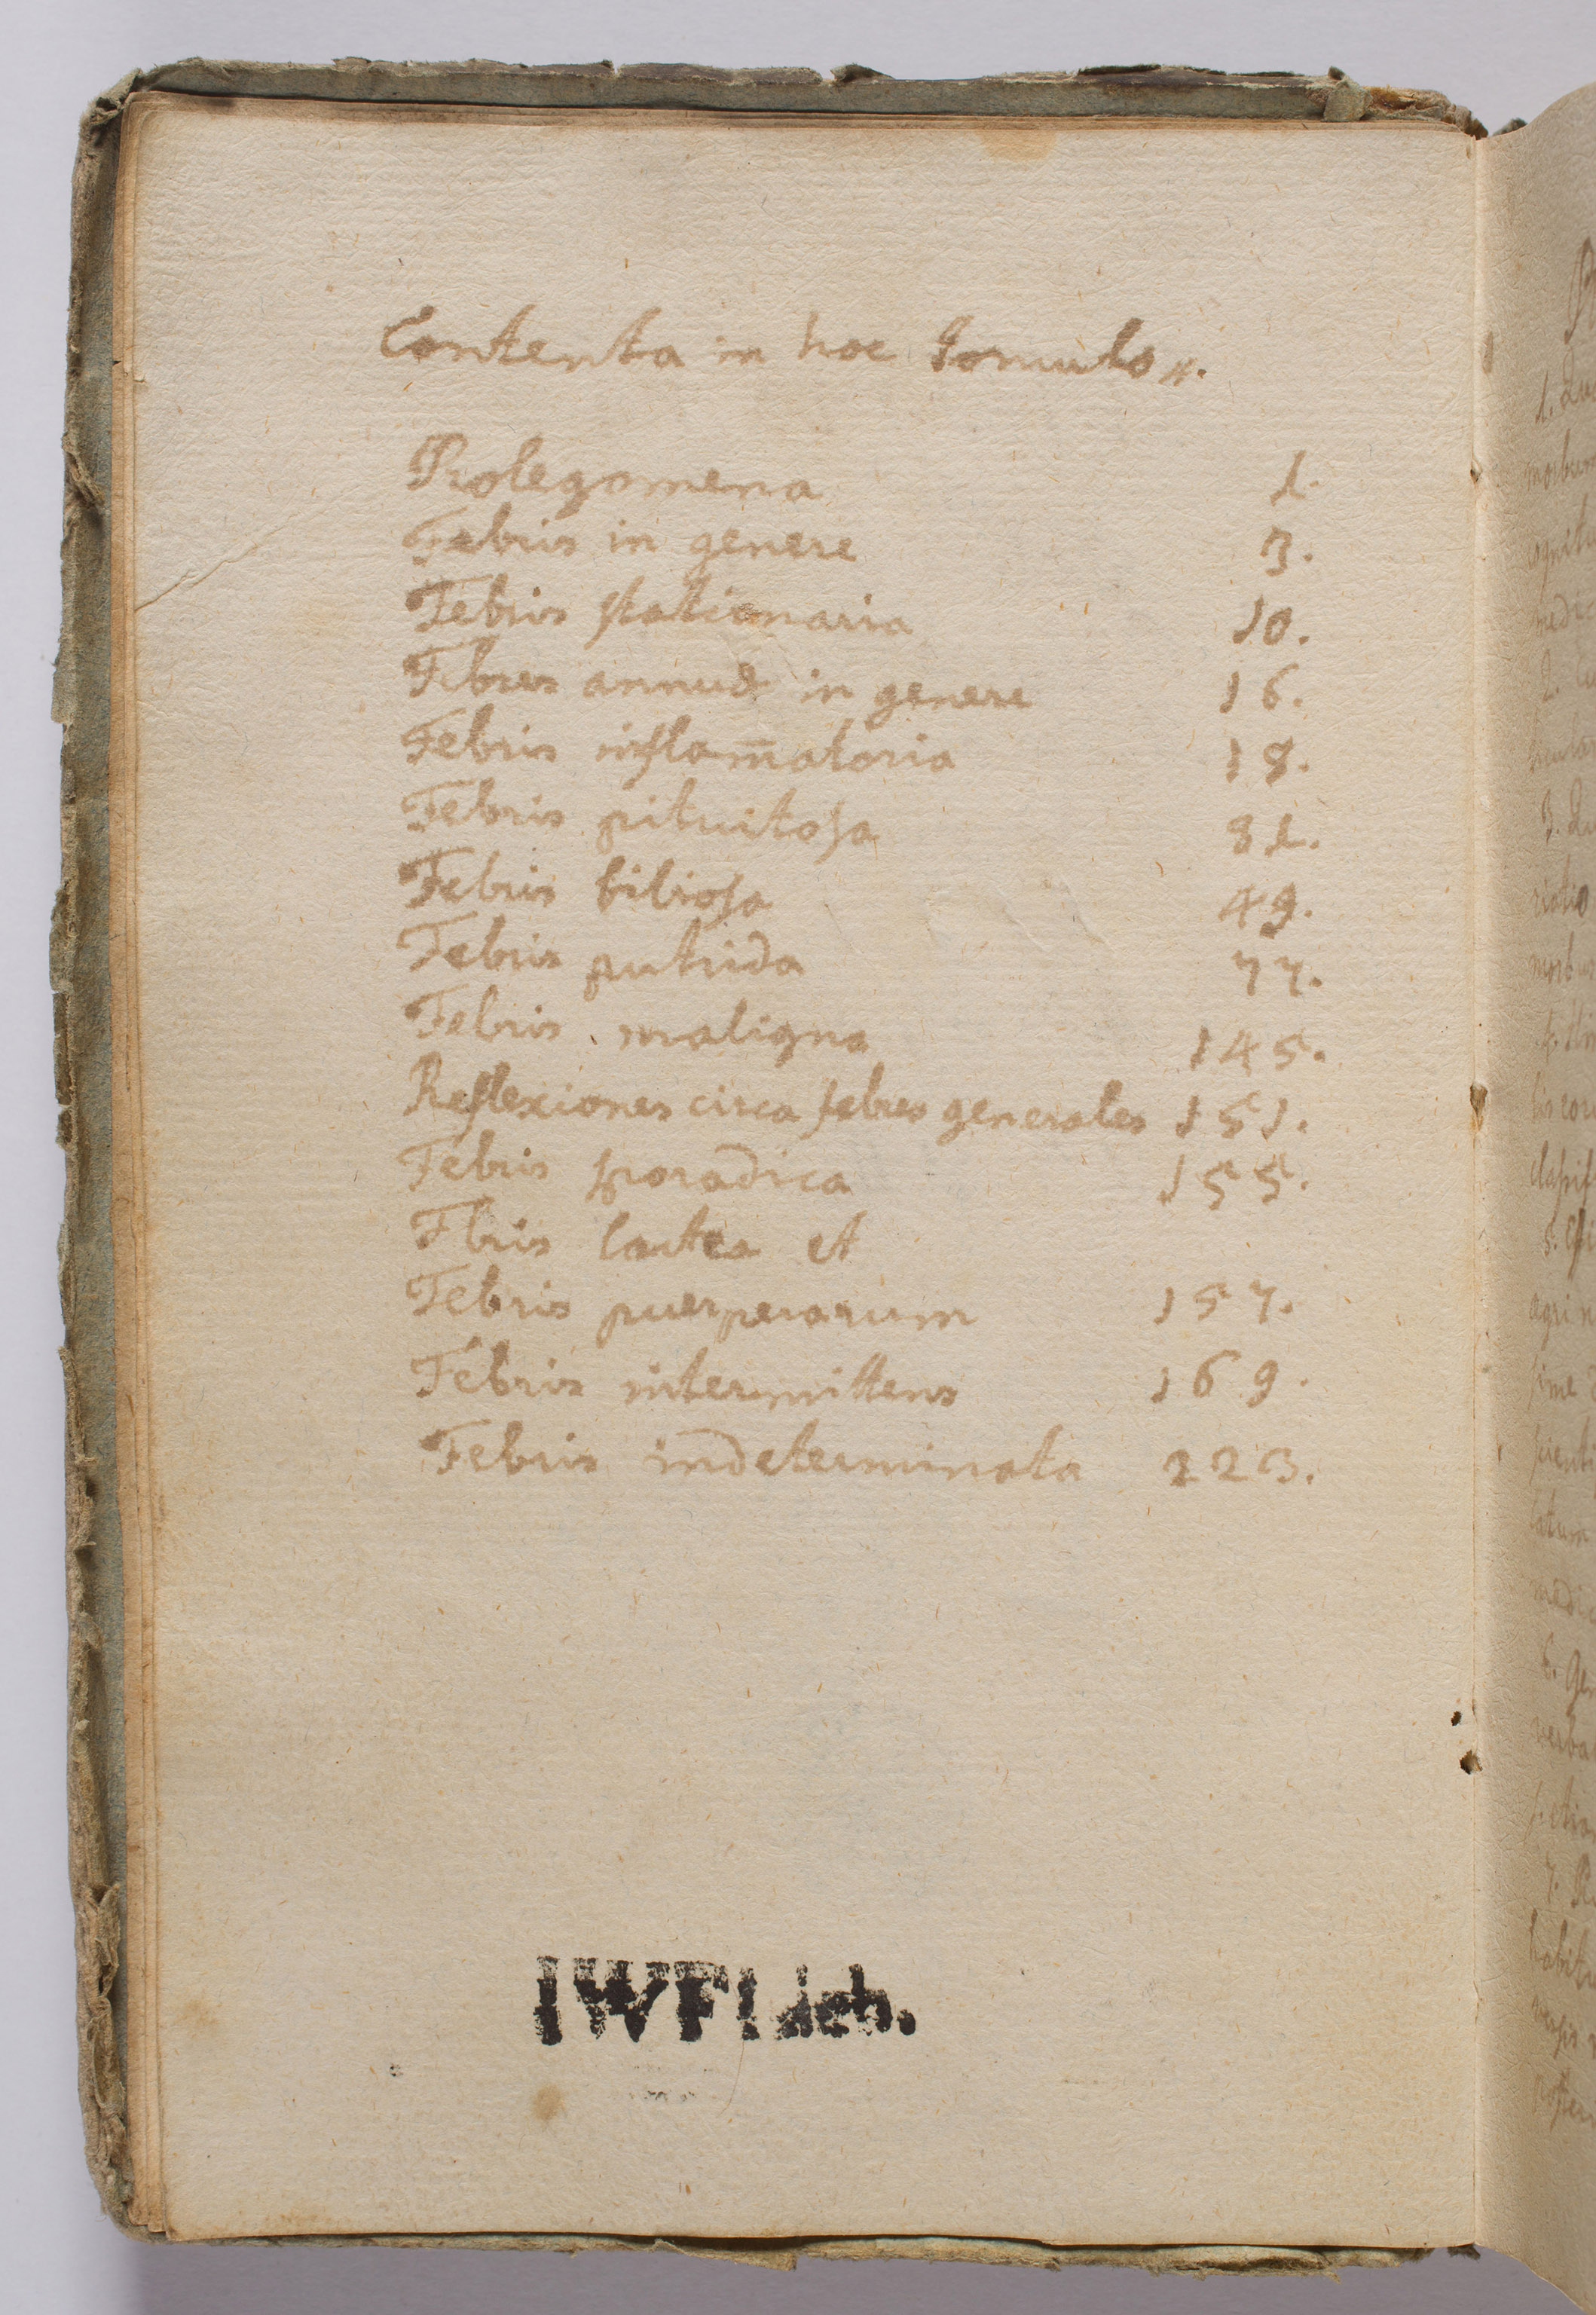 Contenta in hoc Tomulo //.
Prolegomena 1.
Febris in genere 3.
Febris stationaria 10.
Febres annuæ in genere 16.
Febris inflam̄atoria 18.
Febris pituitosa 31.
Febris biliosa 49.
Febris putrida 77.
Febris maligna 145.
Reflexiones circa febres generales 151.
Febris sporadica 155.
Fbris lactea et
Febris puerperarum 157.
Febris intermittens 169.
Febris indeterminata 223.